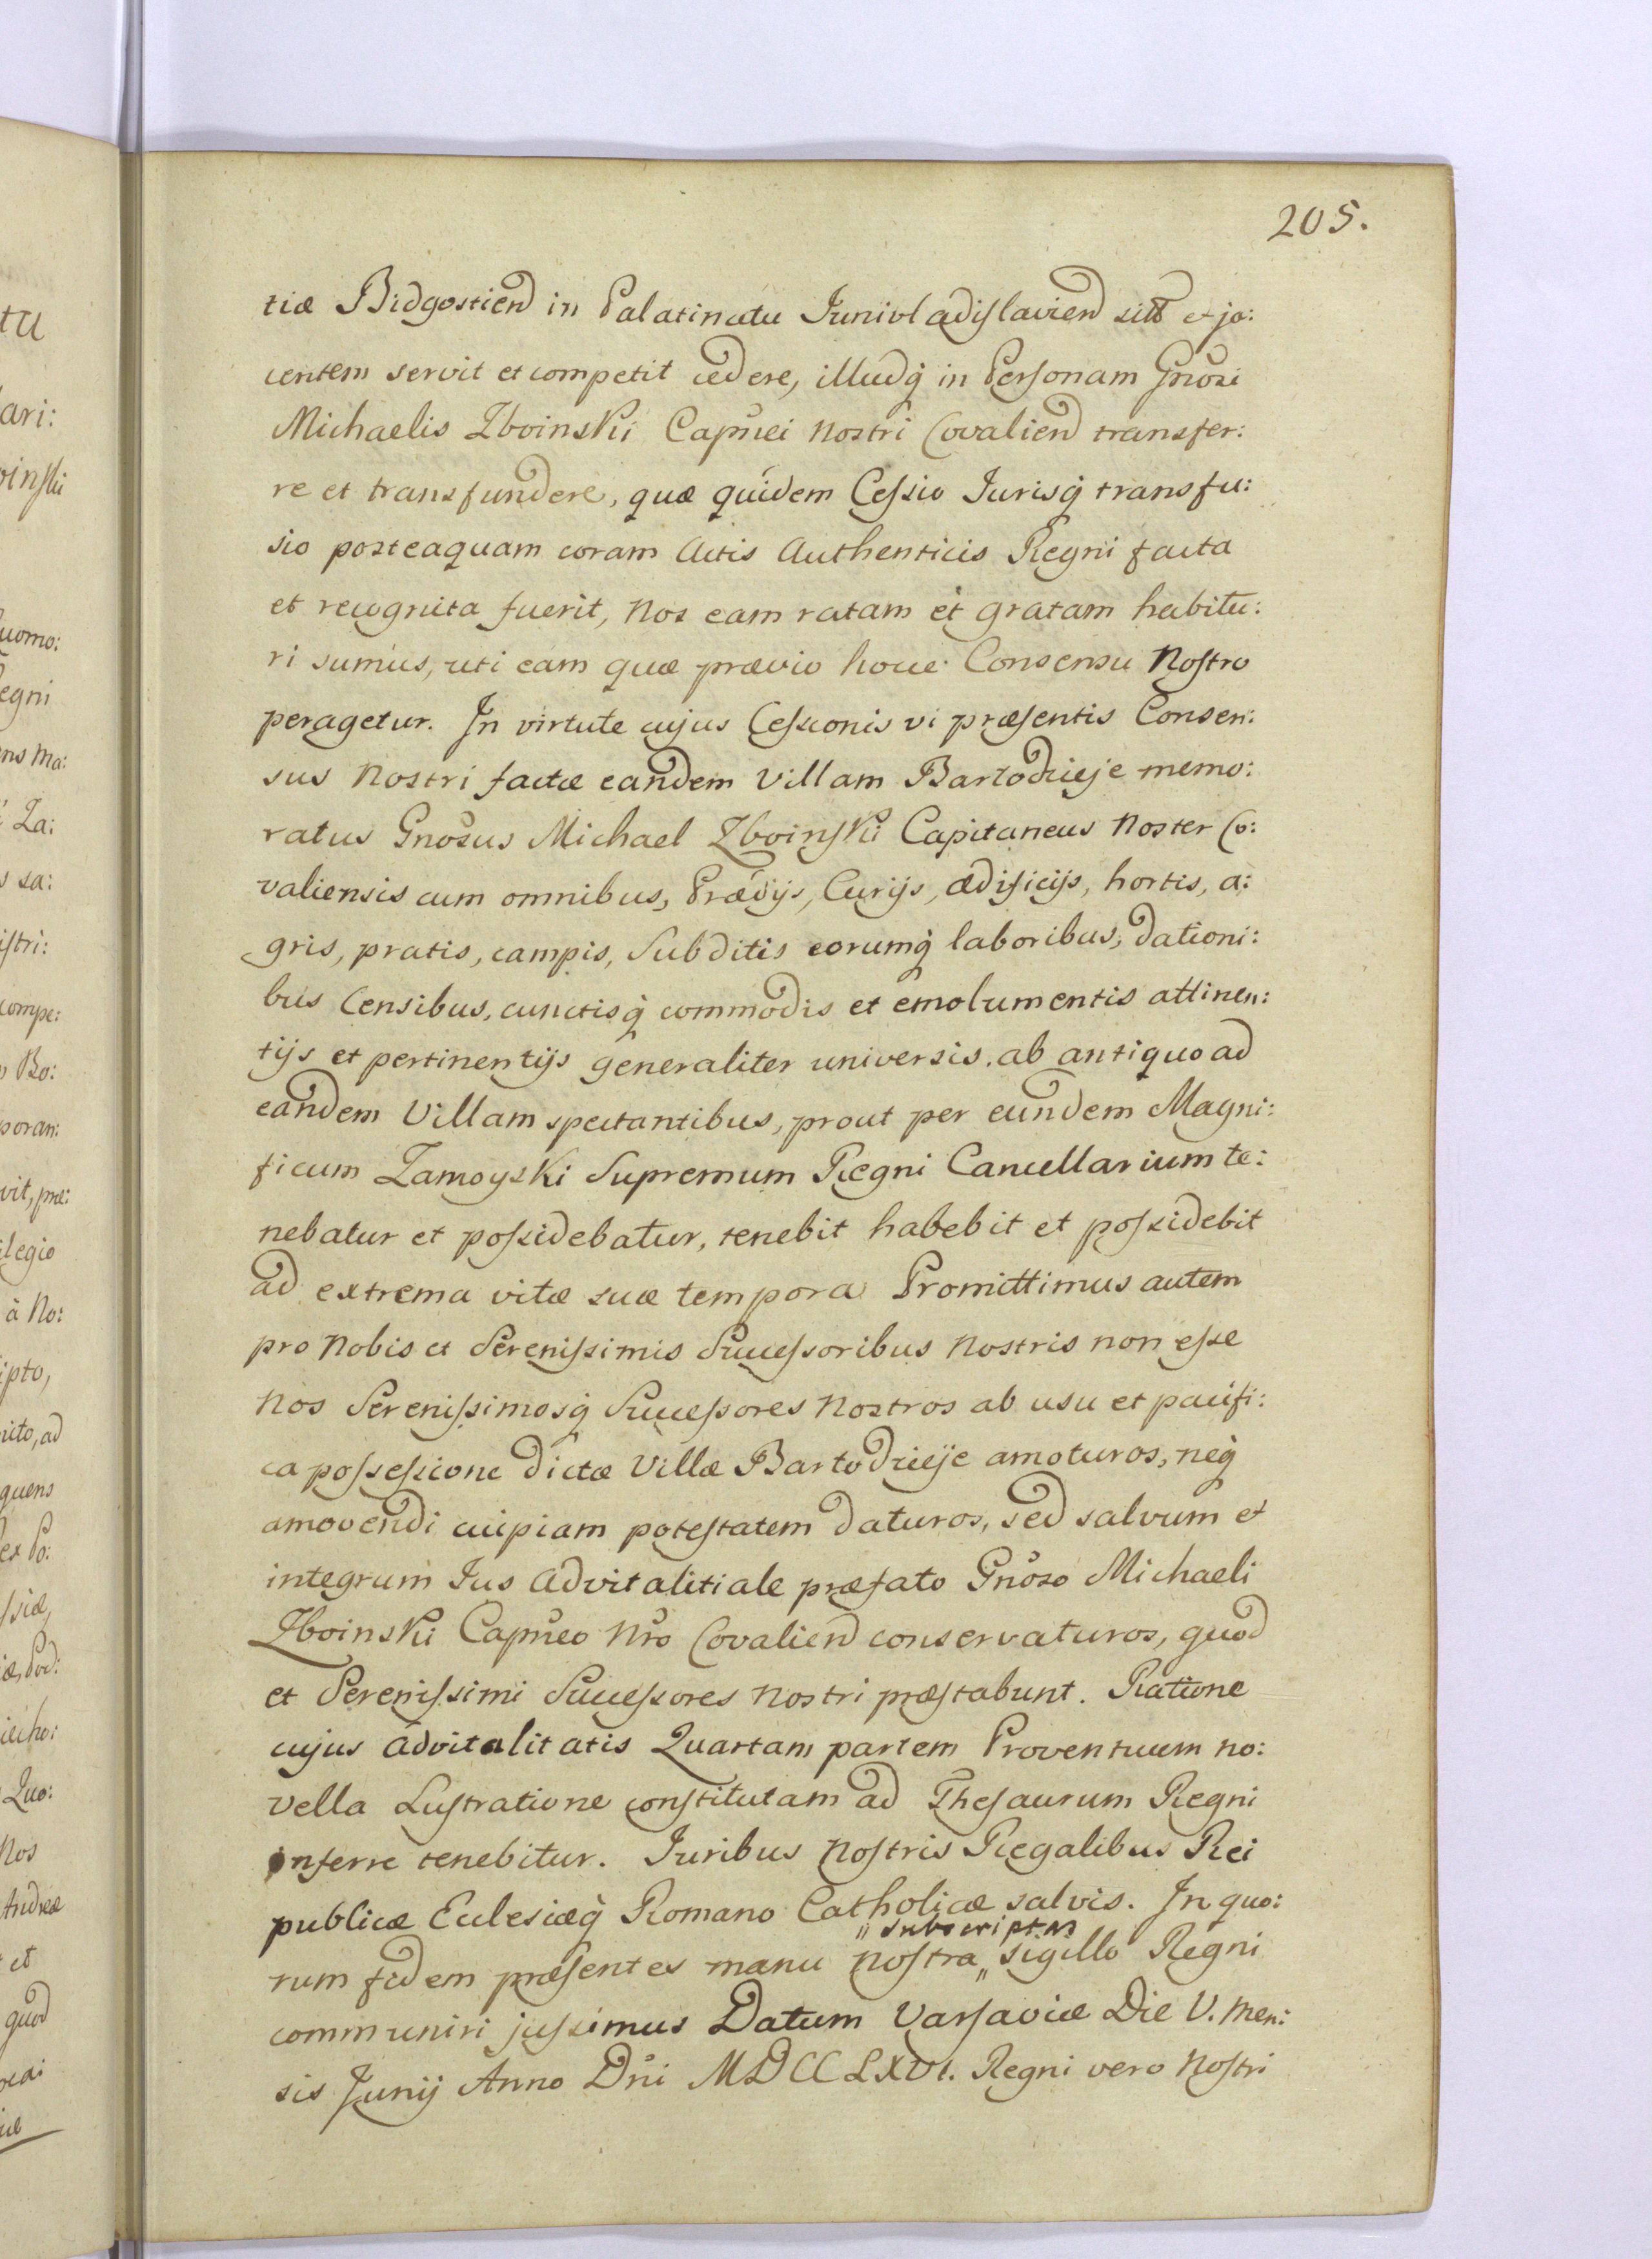 205.
tiæ Bidgostien in Palatinatu Junivladislavien sitt et ja:
centem servit et competit cedere, illudq̃ in Personam Gnosi
Michaelis Zboinski Capnei Nostri Covalien transfer:
re et transfundere, quæ quidem Cessio Jurisq̃ transfu:
sio posteaquam coram Actis Authenticis Regni facta
et recognita fuerit, Nos eam ratam et gratam habitu:
ri sumus, uti eam quæ prævio hocce Consensu Nostro
peragetur. In virtute cujus Cessionis vi præsentis Consen:
sus Nostri factæ eandem Villam Bartodzieje memo:
ratus Gnosus Michael Zboinski Capitaneus Noster Co:
valiensis cum omnibus, Prædijs, Curijs, ædificijs, hortis, a:
gris, pratis, campis, Subditis eorumq̃ laboribus, dationi:
bus Censibus, cunctisq̃ commodis et emolumentis attinen:
tijs et pertinentijs generaliter universis, ab antiquo ad
eandem Villam spectantibus, prout per eundem Magni:
ficum Zamoyski Supremum Regni Cancellarium te:
nebatur et possidebatur, tenebit habebit et possidebit
ad extrema vitæ suæ tempora Promittimus autem
pro Nobis et Serenissimis Successoribus Nostris non esse
Nos Serenissimosq̃ Successores Nostros ab usu et pacifi:
ca possessione dictæ Villæ Bartodzieje amoturos, neq̃
amovendi cuipiam potestatem daturos, sed salvum et
integrum Jus Advitalitiale præfato Gnoso Michaeli
Zboinski Capneo Nro Covalien conservaturos, quod
et Serenissimi Successores Nostri præstabunt. Ratione
cujus Advitalitatis Quartam partem Proventuum no:
vella Lustratione constitutam ad Thesaurum Regni
inferre tenebitur. Juribus Nostris Regalibus Rei
publicæ Eclesiæq̃ Romano Catholicæ salvis. In quo:
" subscriptas
rum fidem præsentes manu Nostra " sigillo Regni
communiri jussimus Datum Varsaviæ Die V. Men:
sis Junij Anno Dni MDCCLXVI. Regni vero Nostri